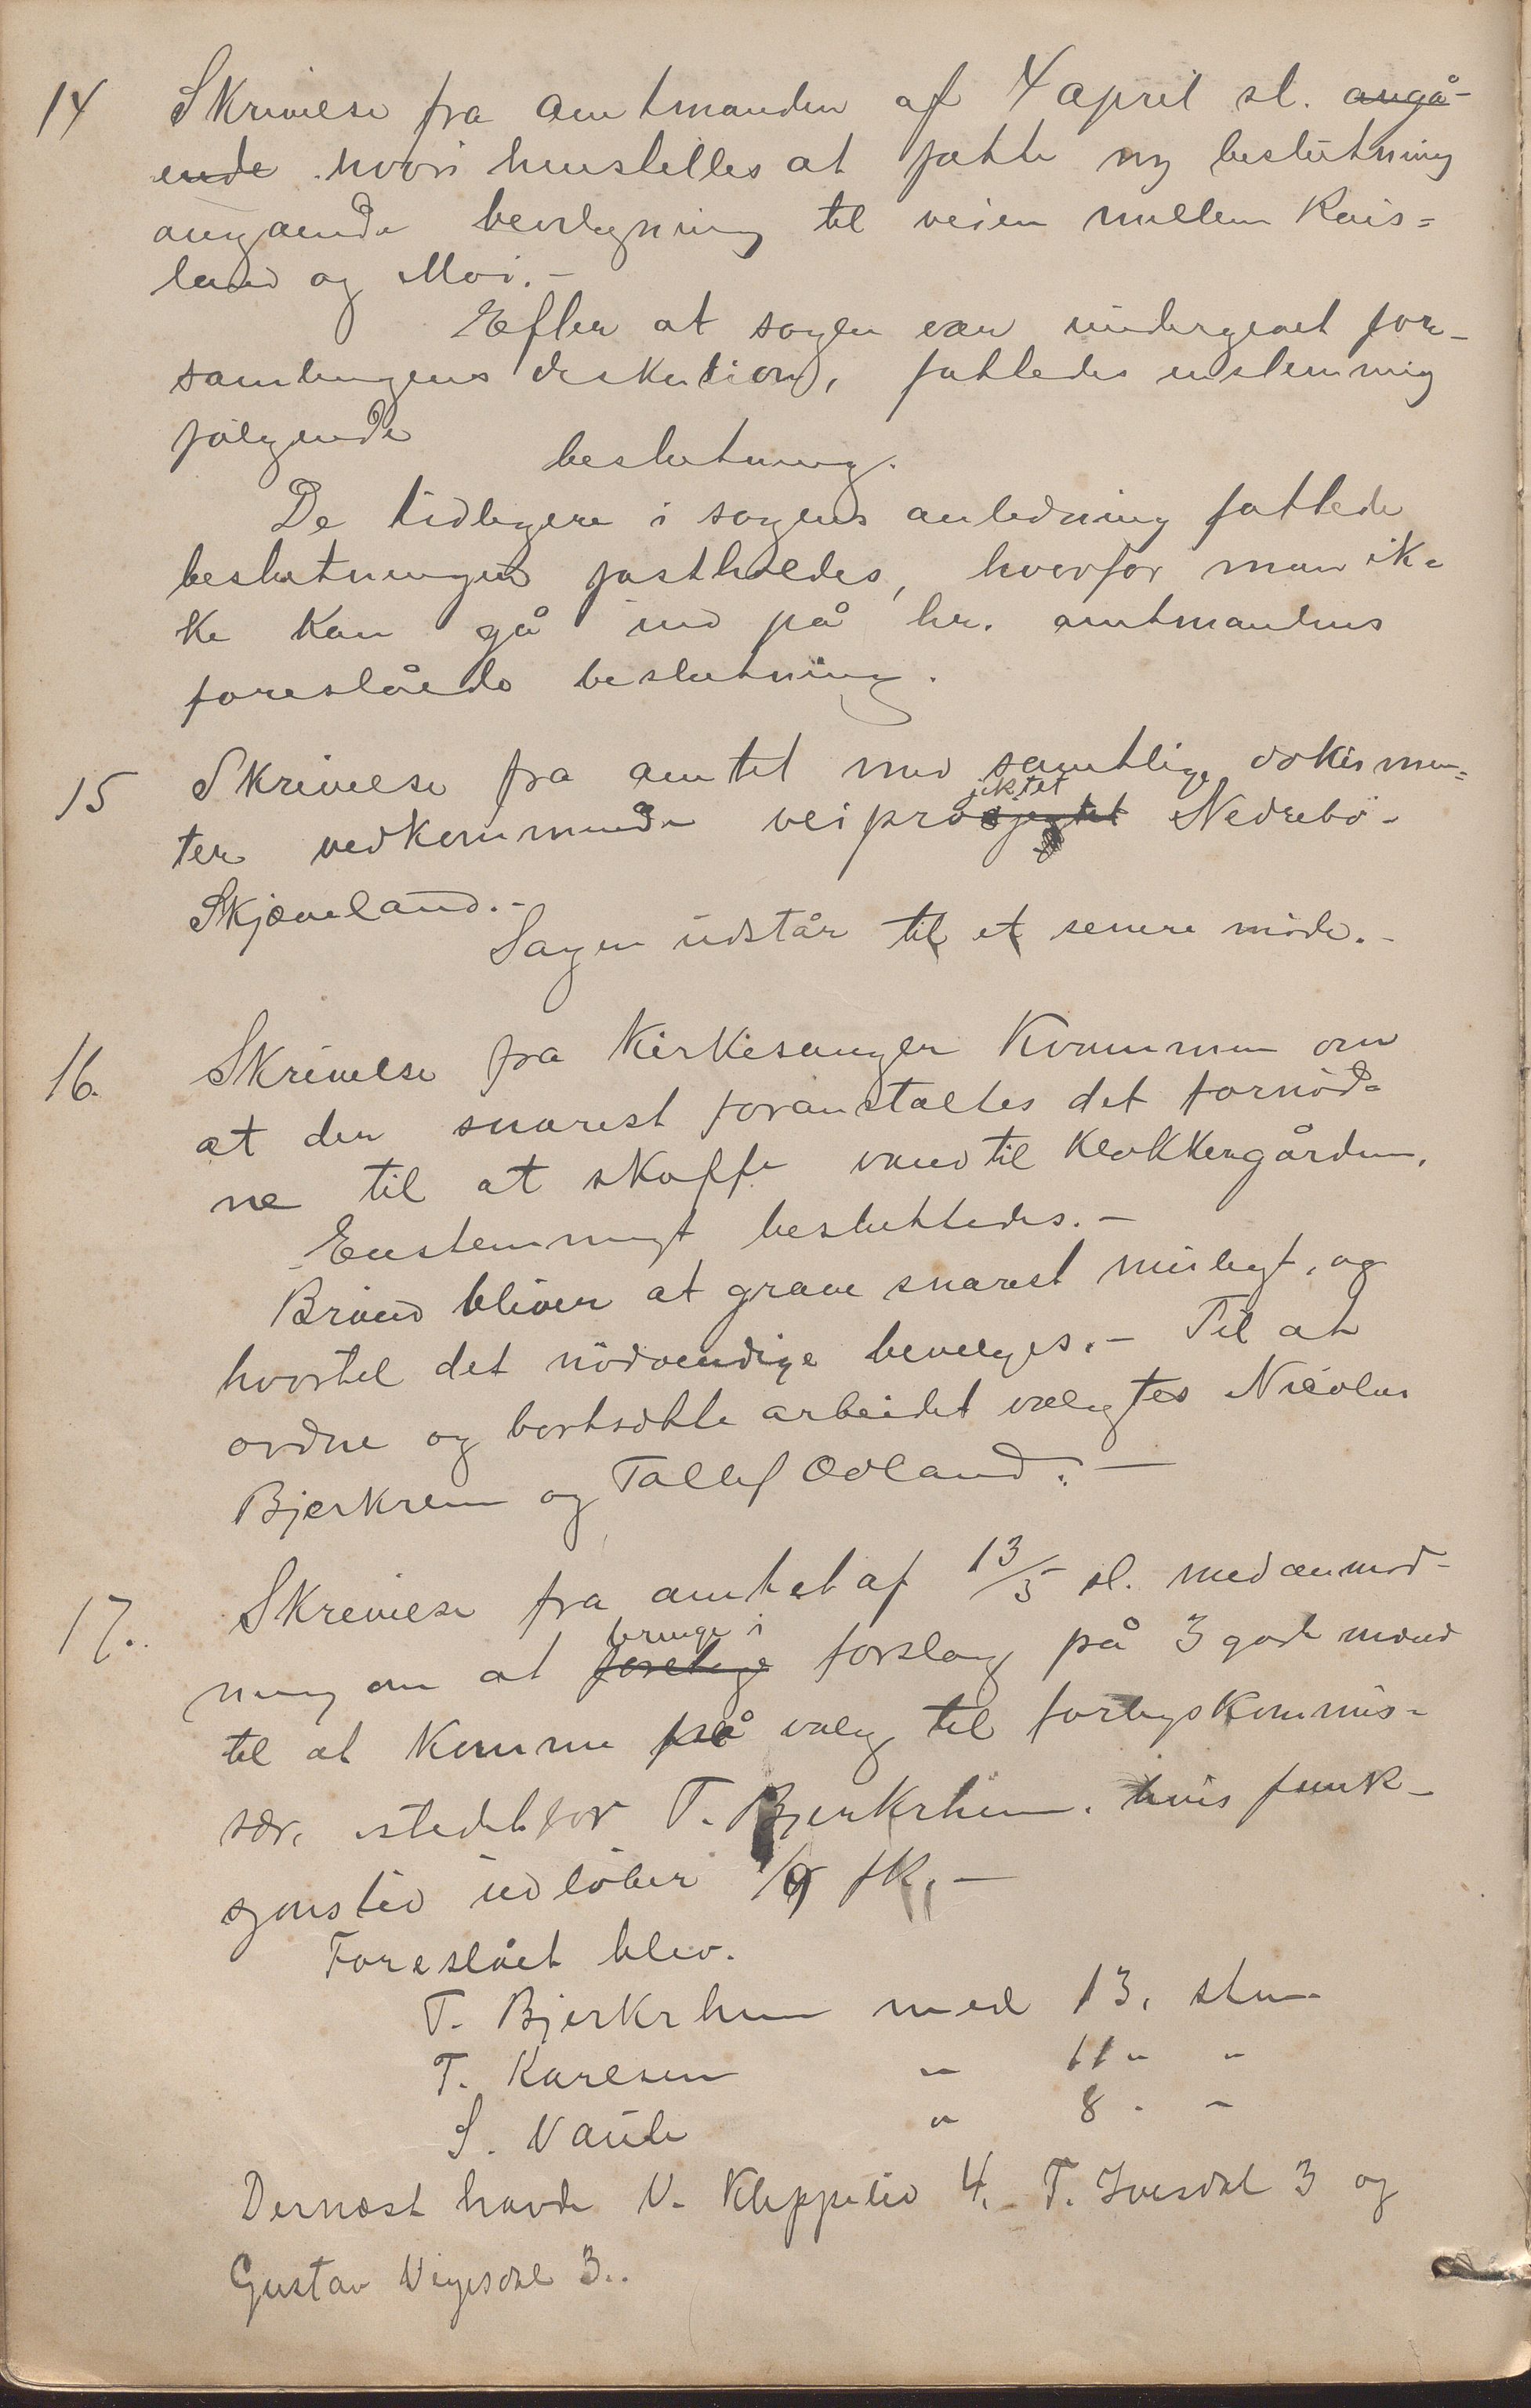 14 Skrivelse fra amtmanden af 4 april sl. angå-
ende hvori henstilles at fatte ny beslutning
angaaende bevilgning til veien mellem Reis=
land og Moi.-
Efter at sagen var undergivet for-
samlingens diskution, fattedes enstemmig
følgende
beslutning.
De tidligere i sagens anledning fattede
beslutninger fastholdes, hvorfor man ik=
ke kan gå ind på hr. amtmandens
foreslåede beslutning.
15 Skrivelse fra amtet med samtlige dokumen=
jektet
ter vedkommende veipro Nedrebø-
Skjæveland.-
Sagen udstår til et senere møde.-
16. Skrivelse fra Kirkesanger Kvammen om
at der snarest foranstaltes det fornød=
ne til at skaffe vand til klokkergården.
Enstemmigt besluttedes.-
Brønd bliver at grave snarest muligt, og
hvortil det nødvendige bevilges.- Til at
ordne og bortsætte arbeidet valgtes Nicolai
Bjerkrem og Tallef Odland.-
17. Skrivelse fra amtet af 13/5 sl. med anmod-
bringe i
ning om at foretage forslag på 3 gode mænd
til at komme på valg til forligskommis-
sær, istedetfor T. Bjerkrheim, hvis funk-
sjonstid udløber 1/9 fk.-
Foreslået blev.
T. Bjerkrheim med 13. stm.
T. Karlsen " 11 " "
S. Vaule " 8 . "
Dernæst havde V. Kleppelid 4, T. Ivesdal 3 og
Gustav Vigesdal 3..